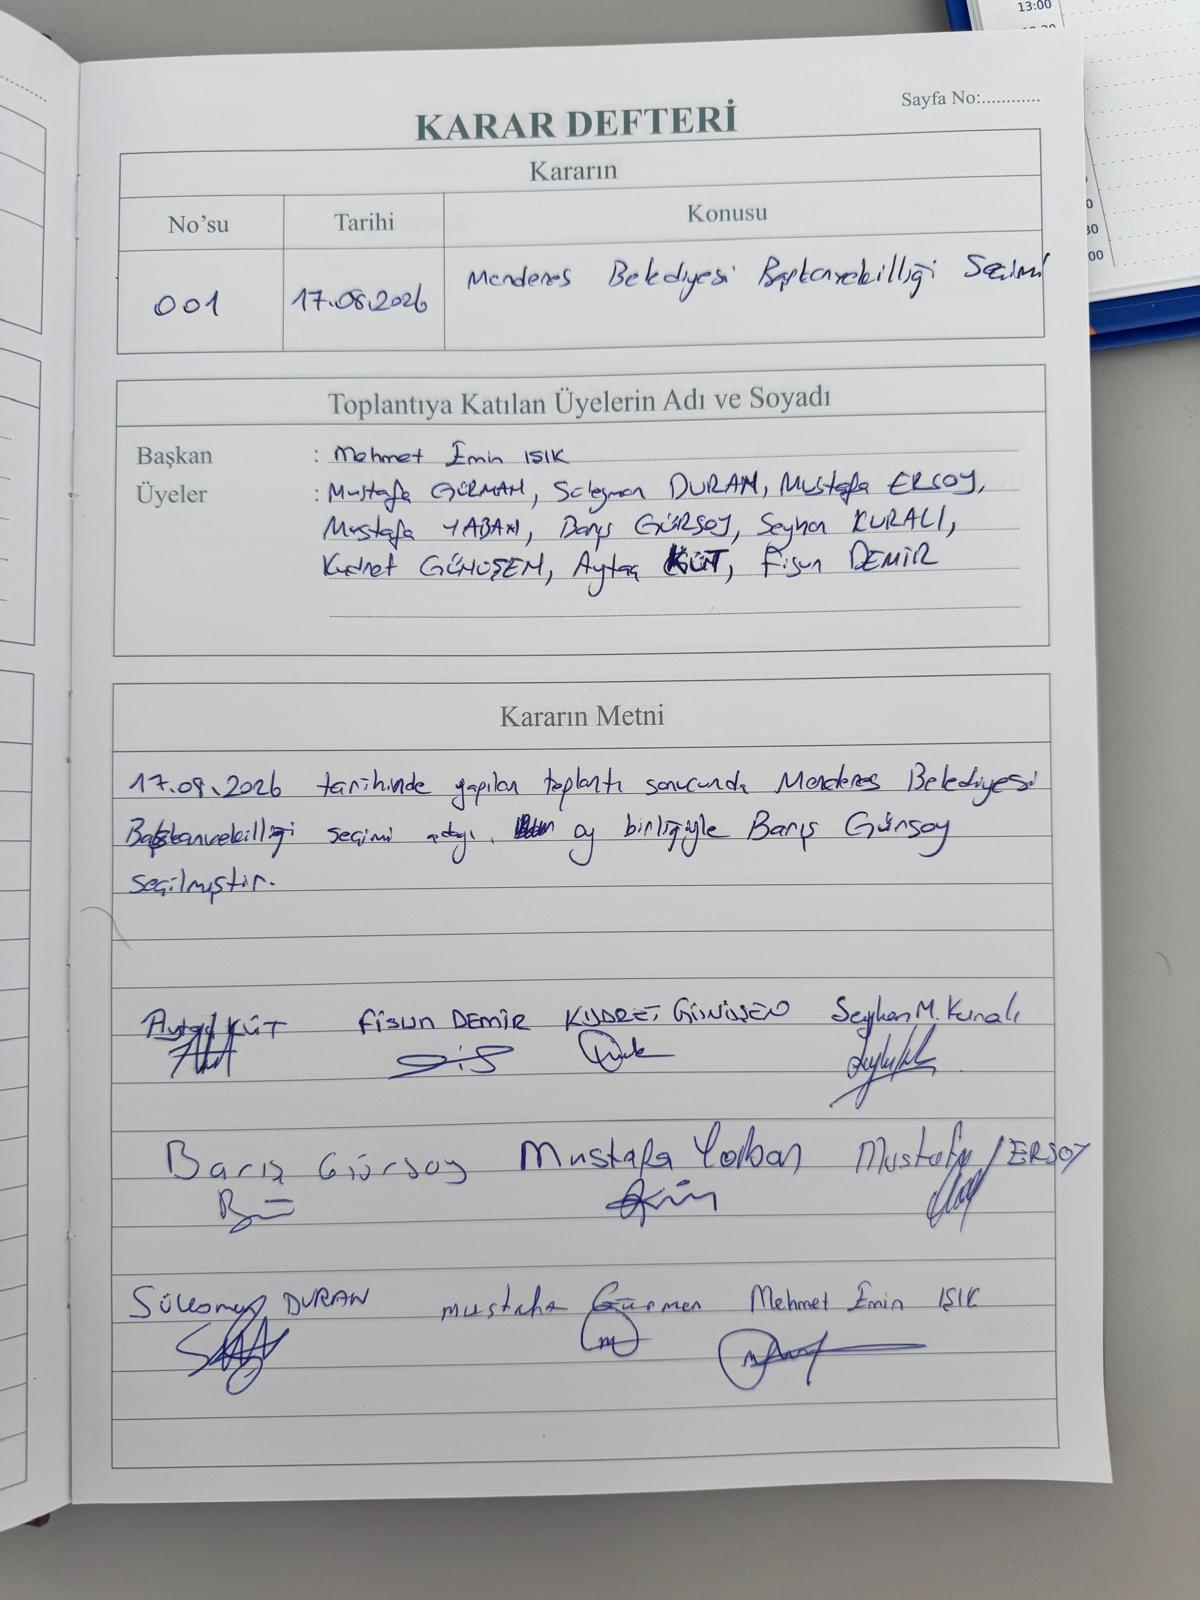 13:00
Sayfa No:............
KARAR DEFTERİ
Kararın
No'su
Tarihi
Konusu
001
17.08.2026
Menderes Belediyesi Başkanvekilliği Seçimi
Toplantıya Katılan Üyelerin Adı ve Soyadı
Başkan : Mehmet Emin IŞIK
Üyeler : Mustafa GÜRMAN, Süleyman DURAN, Mustafa ERSOY,
Mustafa YABAN, Barış GÜRSOY, Seyhan KURALI,
Kudret GÜNÜŞEN, Aytaç KÜT, Fisun DEMİR
Kararın Metni
17.08.2026 tarihinde yapılan toplantı sonucunda Menderes Belediyesi
Başkanvekilliği seçimi oy birliğiyle Barış Gürsoy
seçilmiştir.
Aytaç KÜT FİSUN DEMİR KUDRET GÜNÜŞEN Seyhan M. Kuralı
Barış Gürsoy Mustafa Yaban Mustafa ERSOY
Süleyman DURAN mustafa Gürman Mehmet Emin IŞIK